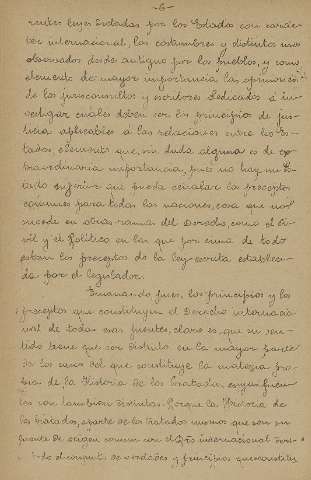 -6-
rentes leyes dictadas por los Estados con carác-
ter internacional, las costumbres y distintos usos
observados desde antiguo por los pueblos, y como
elemento de mayor importancia las opiniones
de los jurisconsultos y escritores dedicados á in-
vestigar cuales deben ser los principios de jus-
ticia aplicables á las relaciones entre los Es-
tados, elemento que, sin duda alguna es de ex-
traordinaria importancia, pues no hay un Es-
tado superior que pueda señalar los preceptos
comunes para todas las naciones, cosa que no
sucede en otras ramas del Derecho, como el Ci-
vil y el Político en las que por cima de todo
estan los preceptos de la ley escrita estableci-
da por el legislador.
Emanando pues, los principios y los
preceptos que constituyen el Derecho internacio-
nal de todas esas fuentes, claro es, que su con-
tenido tiene que ser distinto en la mayor parte
de los casos del que constituye la materia pro-
pia de la Historia de los Tratados, cuyas fuen-
tes son tambien distintas. Porque la Historia de
los tratados, aparte de los tratados mismos que son su
fuente de origen comun con el Dro internacional
de el conjunto de verdades y principios que constituy